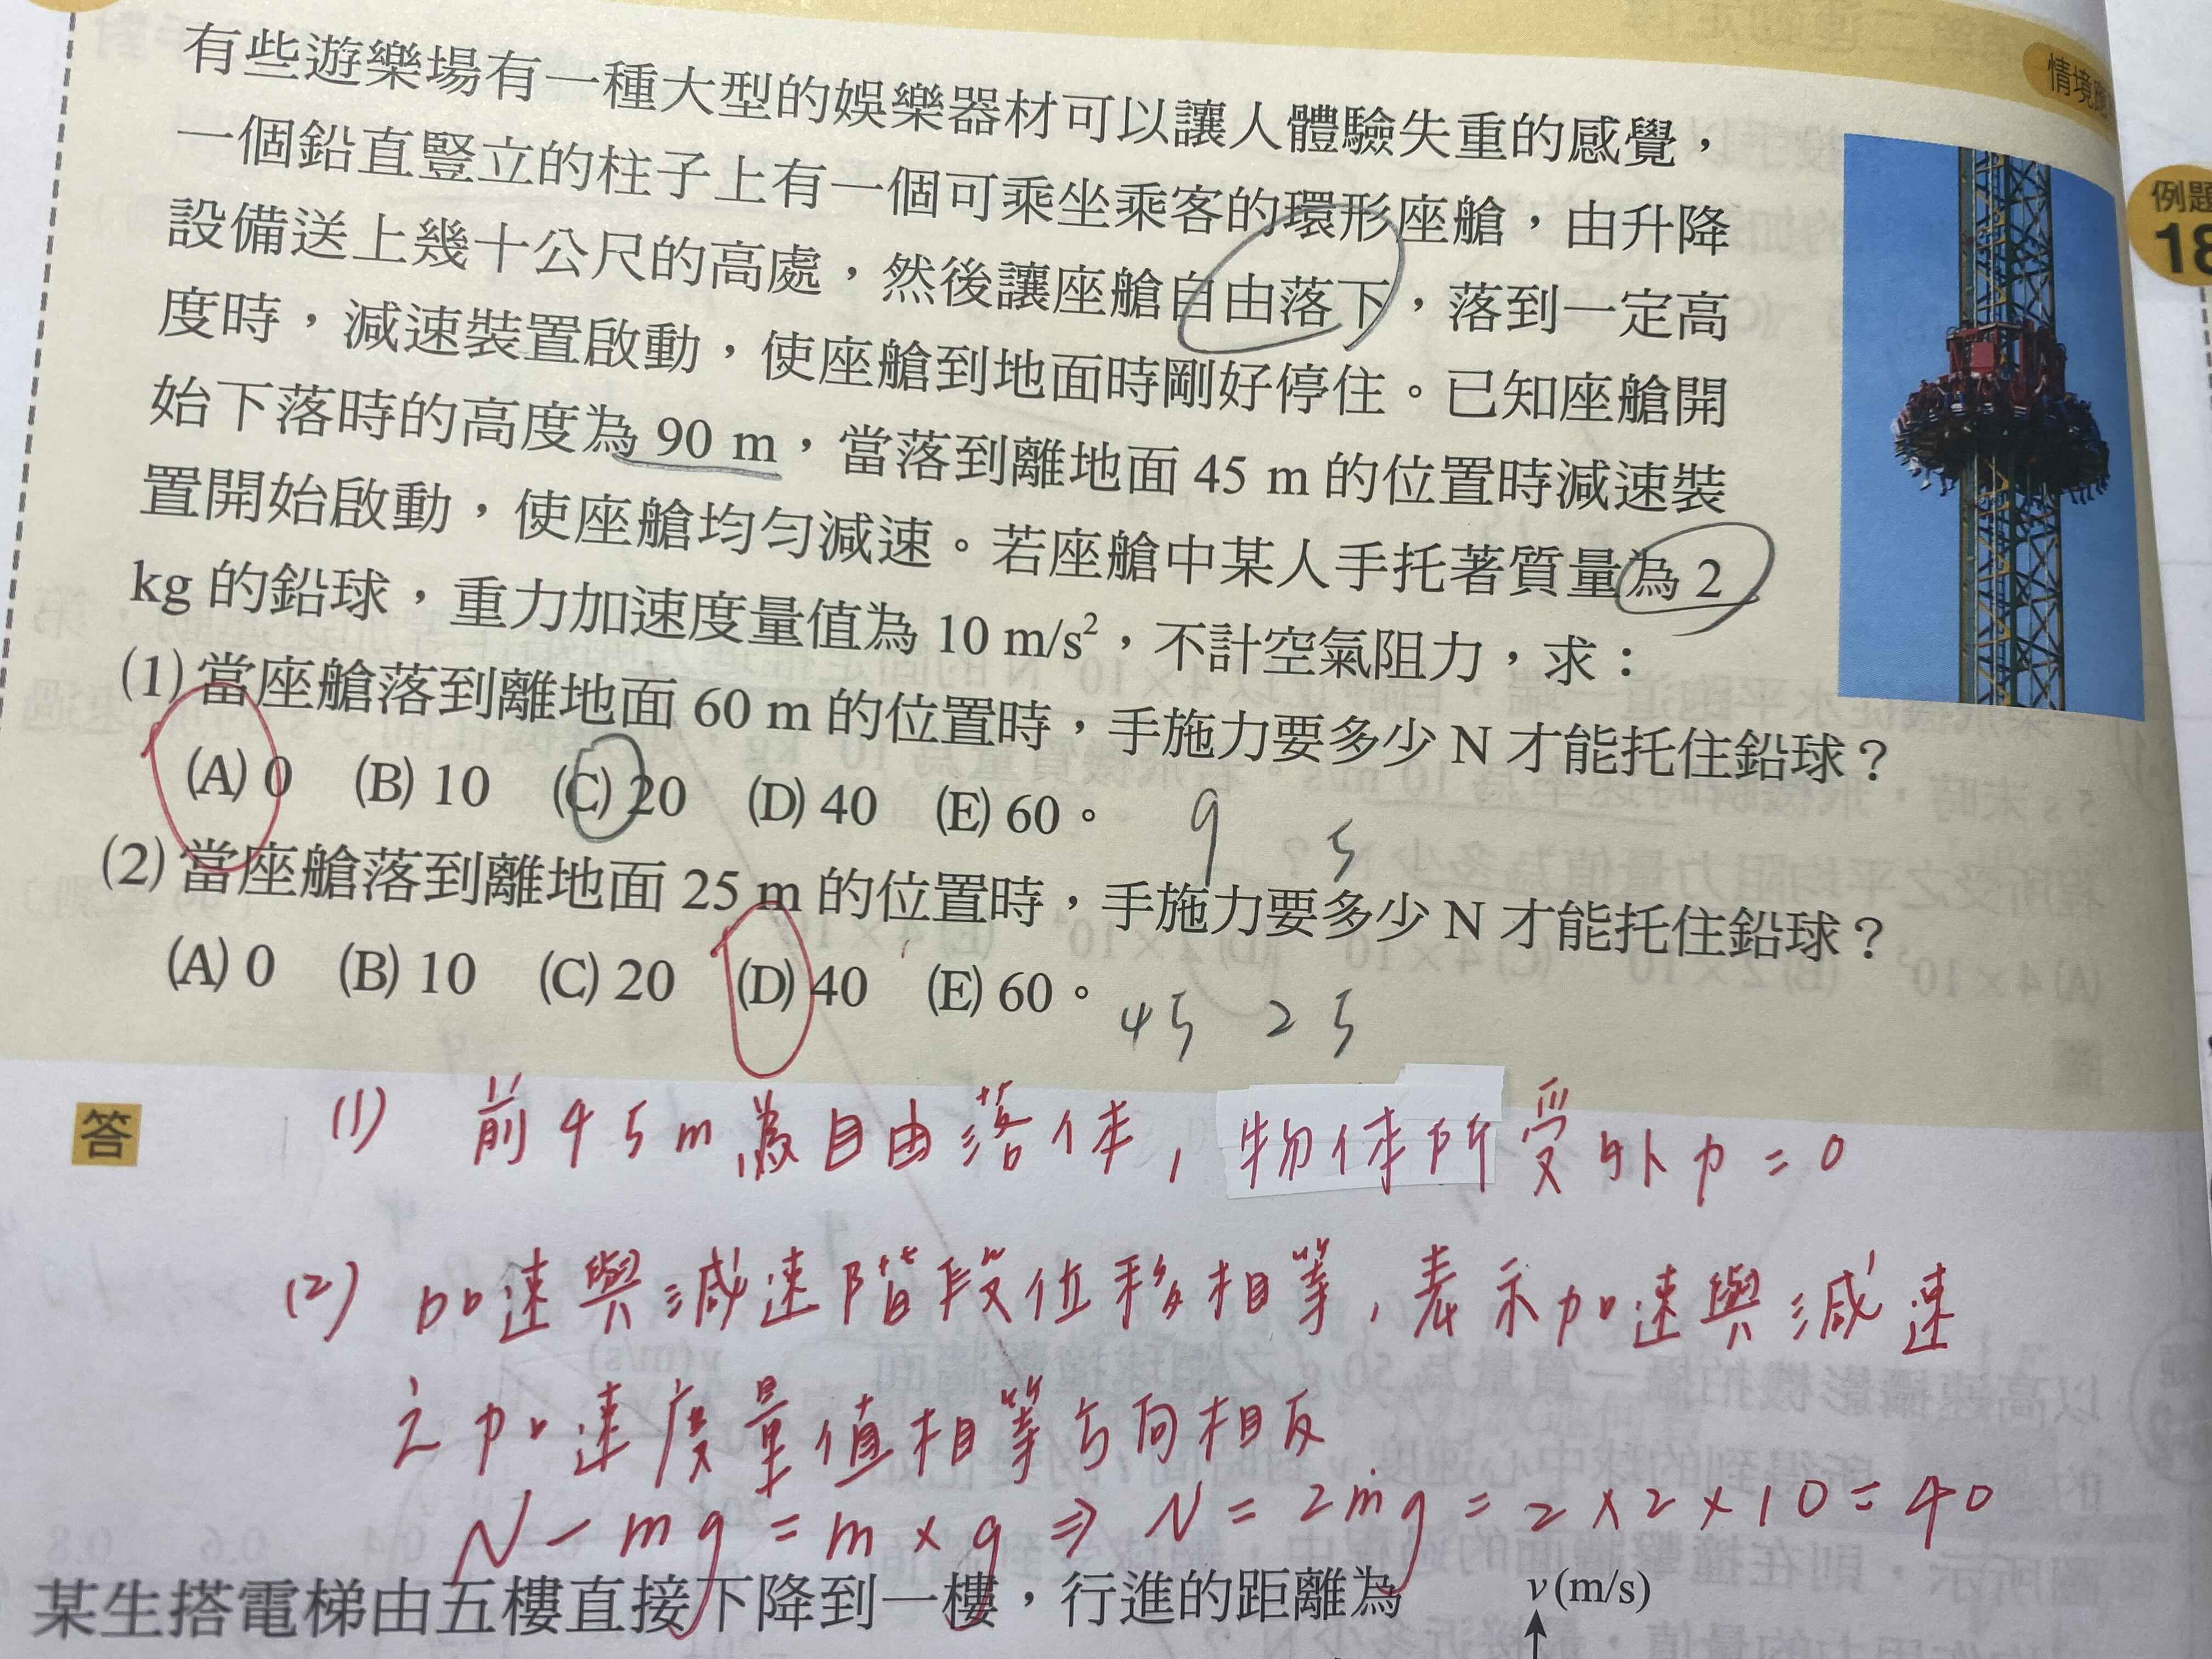 情境
有些遊樂場有一種大型的娛樂器材可以讓人體驗失重的感覺，
一個鉛直豎立的柱子上有一個可乘坐乘客的環形座艙，由升降
設備送上幾十公尺的高處，然後讓座艙自由落下，落到一定高
度時，減速裝置啟動，使座艙到地面時剛好停住。已知座艙開
始下落時的高度為 90 m，當落到離地面 45 m 的位置時減速裝
置開始啟動，使座艙均勻減速。若座艙中某人手托著質量為 2
kg 的鉛球，重力加速度量值為 10 m/s²，不計空氣阻力，求：
(1) 當座艙落到離地面 60 m 的位置時，手施力要多少 N 才能托住鉛球？
(A) 0 (B) 10 (C) 20 (D) 40 (E) 60。
9 5
(2) 當座艙落到離地面 25 m 的位置時，手施力要多少 N 才能托住鉛球？
(A) 0 (B) 10 (C) 20 (D) 40 (E) 60。
45 25
答
(1) 前45m為自由落体，物体所受外力=0
(2) 加速與減速階段位移相等，表示加速與減速
之加速度量值相等方向相反
N-mg=m×g⇒N=2mg=2×2×10=40
某生搭電梯由五樓直接下降到一樓，行進的距離為
v(m/s)
例題
18